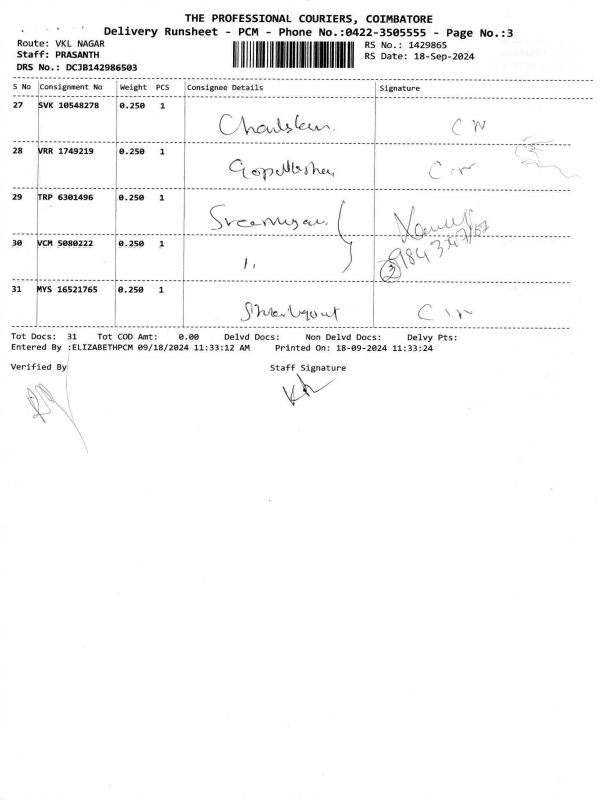 THE PROFESSIONAL COURIERS, COIMBATORE
Delivery Runsheet - PCM - Phone No.:0422-3505555 - Page No.:3
Route: VKL NAGAR RS No.: 1429865
Staff: PRASANTH RS Date: 18-Sep-2024
DRS No.: DCJB142986503
S No Consignment No Weight PCS Consignee Details Signature
27 SVK 10548278 0.250 1
28 VRR 1749219 0.250 1
29 TRP 6301496 0.250 1
30 VCM 5080222 0.250 1
31 MYS 16521765 0.250 1
Tot Docs: 31 Tot COD Amt: 0.00 Delvd Docs: Non Delvd Docs: Delvy Pts:
Entered By :ELIZABETHPCM 09/18/2024 11:33:12 AM Printed On: 18-09-2024 11:33:24
Verified By Staff Signature